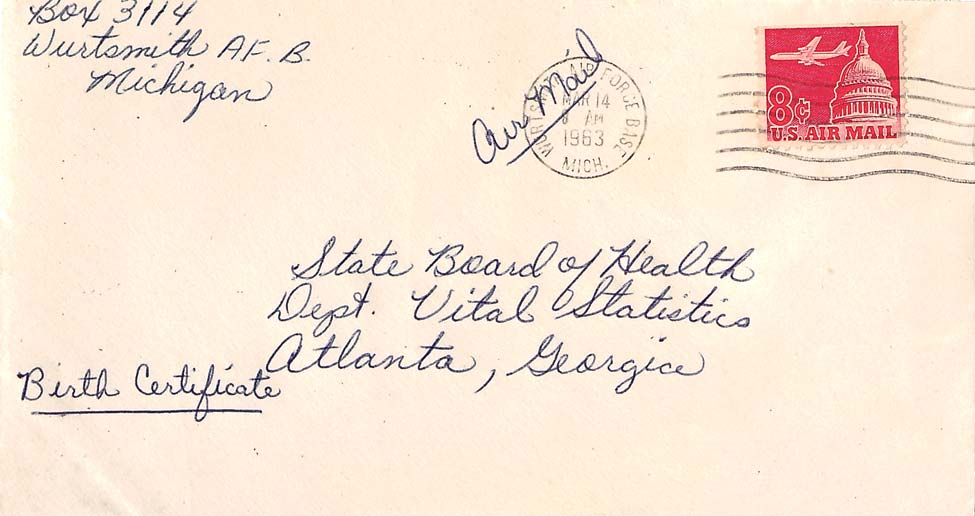 Box 3114
Wurtsmith A.F.B.
Michigan
Air Mail
WURTSMITH AIR FORCE BASE
MAR 14
8 AM
1963
MICH.
8¢
U.S. AIR MAIL
State Board of Health
Dept. Vital Statistics
Atlanta, Georgia
Birth Certificate